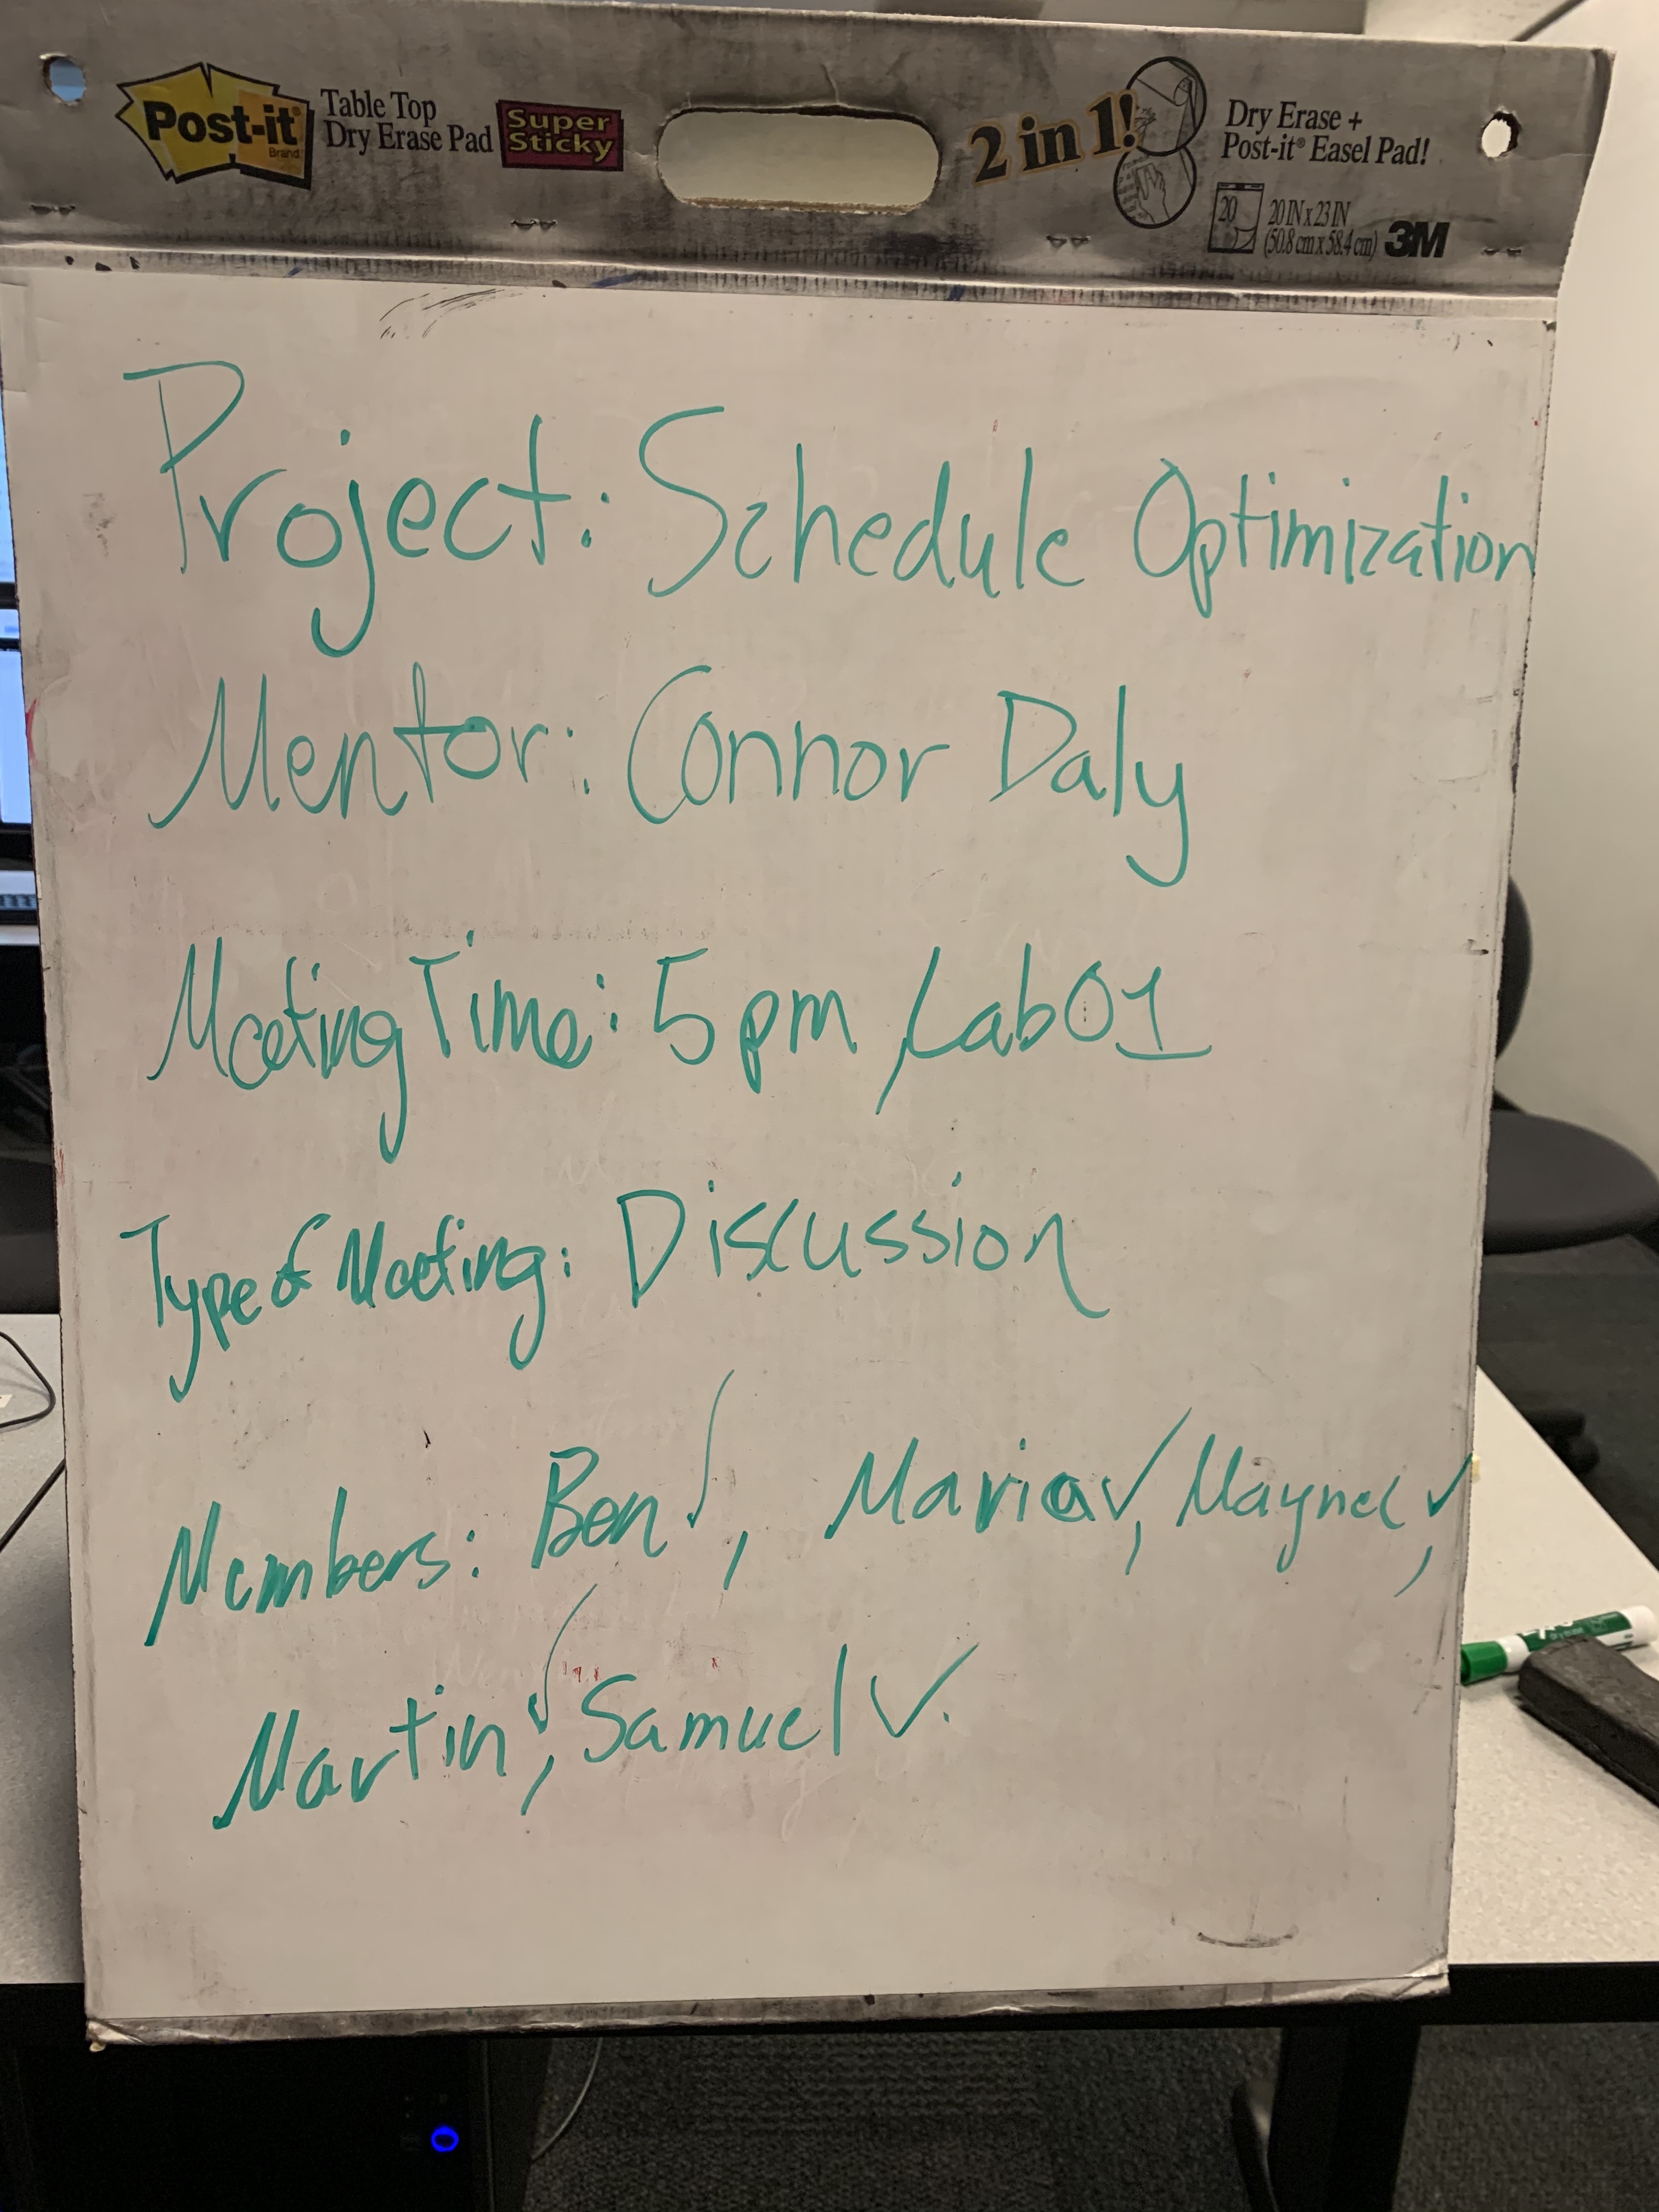 Post-it Brand
Table Top
Dry Erase Pad
Super
Sticky
2 in 1!
Dry Erase +
Post-it® Easel Pad!
20
20 IN x 23 IN
(50.8 cm x 58.4 cm)
3M
Project: Schedule Optimization
Mentor: Connor Daly
Meeting Time: 5 pm, Lab 01
Type of Meeting: Discussion
Members: Ben ✓, Maria ✓, Maynel ✓,
Martin ✓, Samuel ✓.